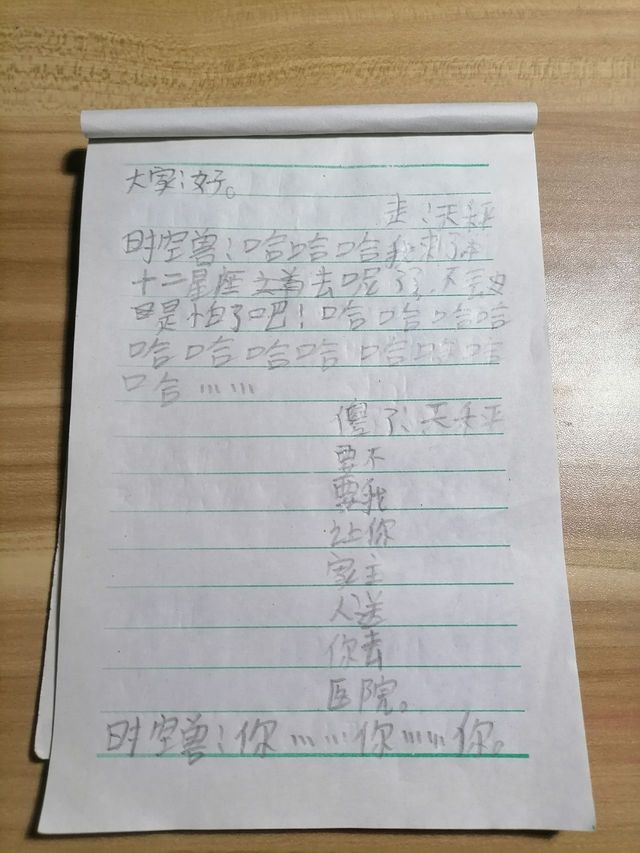 大家：好。
：天秤
时空兽：哈哈哈我来了
十二星座去呢了，不会
是怕了吧！哈哈哈哈
哈哈哈哈哈哈哈
哈……
傻了：天秤
要不
要我
让你
家主
人送
你去
医院。
时空兽：你……你……你。